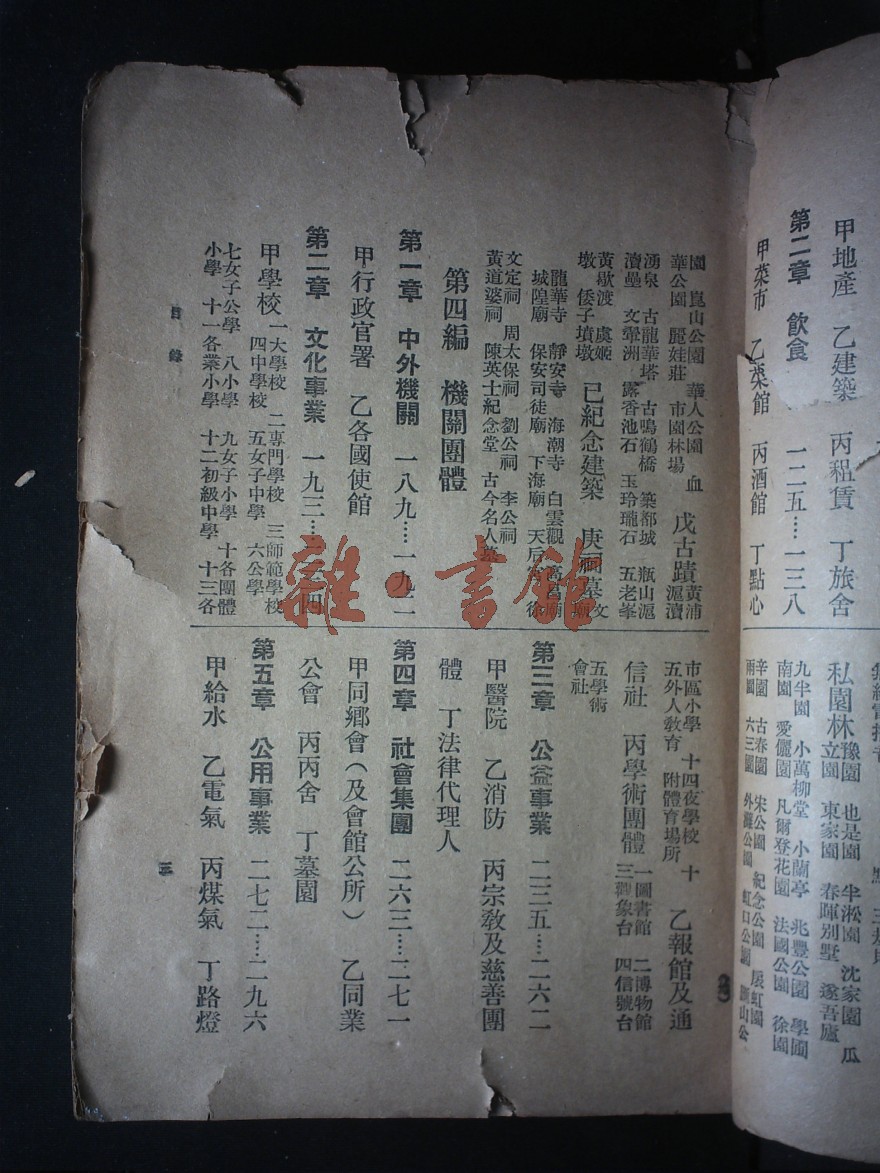 甲地產 乙建築 丙租賃 丁旅舍
第二章 飲食 一二五…一三八
甲菜市 乙菜館 丙酒館 丁點心
私園林 豫園 也是園 半淞園 沈家園 瓜
立園 東家園 春暉別墅 遂吾廬
九半園 小萬柳堂 小蘭亭 兆豐公園 學圃
南園 愛儷園 凡爾登花園 法國公園 徐園
辛園 古春園 宋公園 紀念公園
兩園 六三園 外灘公園 虹口公園
園 崑山公園 華人公園 血
華公園 麗娃莊 市園林場
戊古蹟 黃浦
滬瀆
湧泉 古龍華塔 古鳴鶴橋 築都城 瓶山滬
瀆壘 文犖洲 露香池石 玉玲瓏石 五老峯
黃歇渡 虞姬
墩 倭子墳墩
已紀念建築 庚祠墓廟 文
龍華寺 靜安寺 海潮寺 白雲觀 高昌廟
城隍廟 保安司徒廟 下海廟 天后宮 徐
文定祠 周太保祠 劉公祠 李公祠
黃道婆祠 陳英士紀念堂 古今名人墓
第四編 機關團體
第一章 中外機關 一八九…一九二
甲行政官署 乙各國使館
第二章 文化事業 一九三…二三四
甲學校 一大學校 二專門學校 三師範學校
四中學校 五女子中學 六公學
七女子公學 八小學 九女子小學 十各團體
小學 十一各業小學 十二初級中學 十三各
市區小學 十四夜學校 十
五外人教育 附體育場所
乙報館及通
信社 丙學術團體 一圖書館 二博物館
三觀象台 四信號台
五學術
會社
第三章 公益事業 二三五…二六二
甲醫院 乙消防 丙宗教及慈善團
體 丁法律代理人
第四章 社會集團 二六三…二七一
甲同鄉會(及會館公所) 乙同業
公會 丙丙舍 丁墓園
第五章 公用事業 二七二…二九六
甲給水 乙電氣 丙煤氣 丁路燈
目錄
三
雜·書館